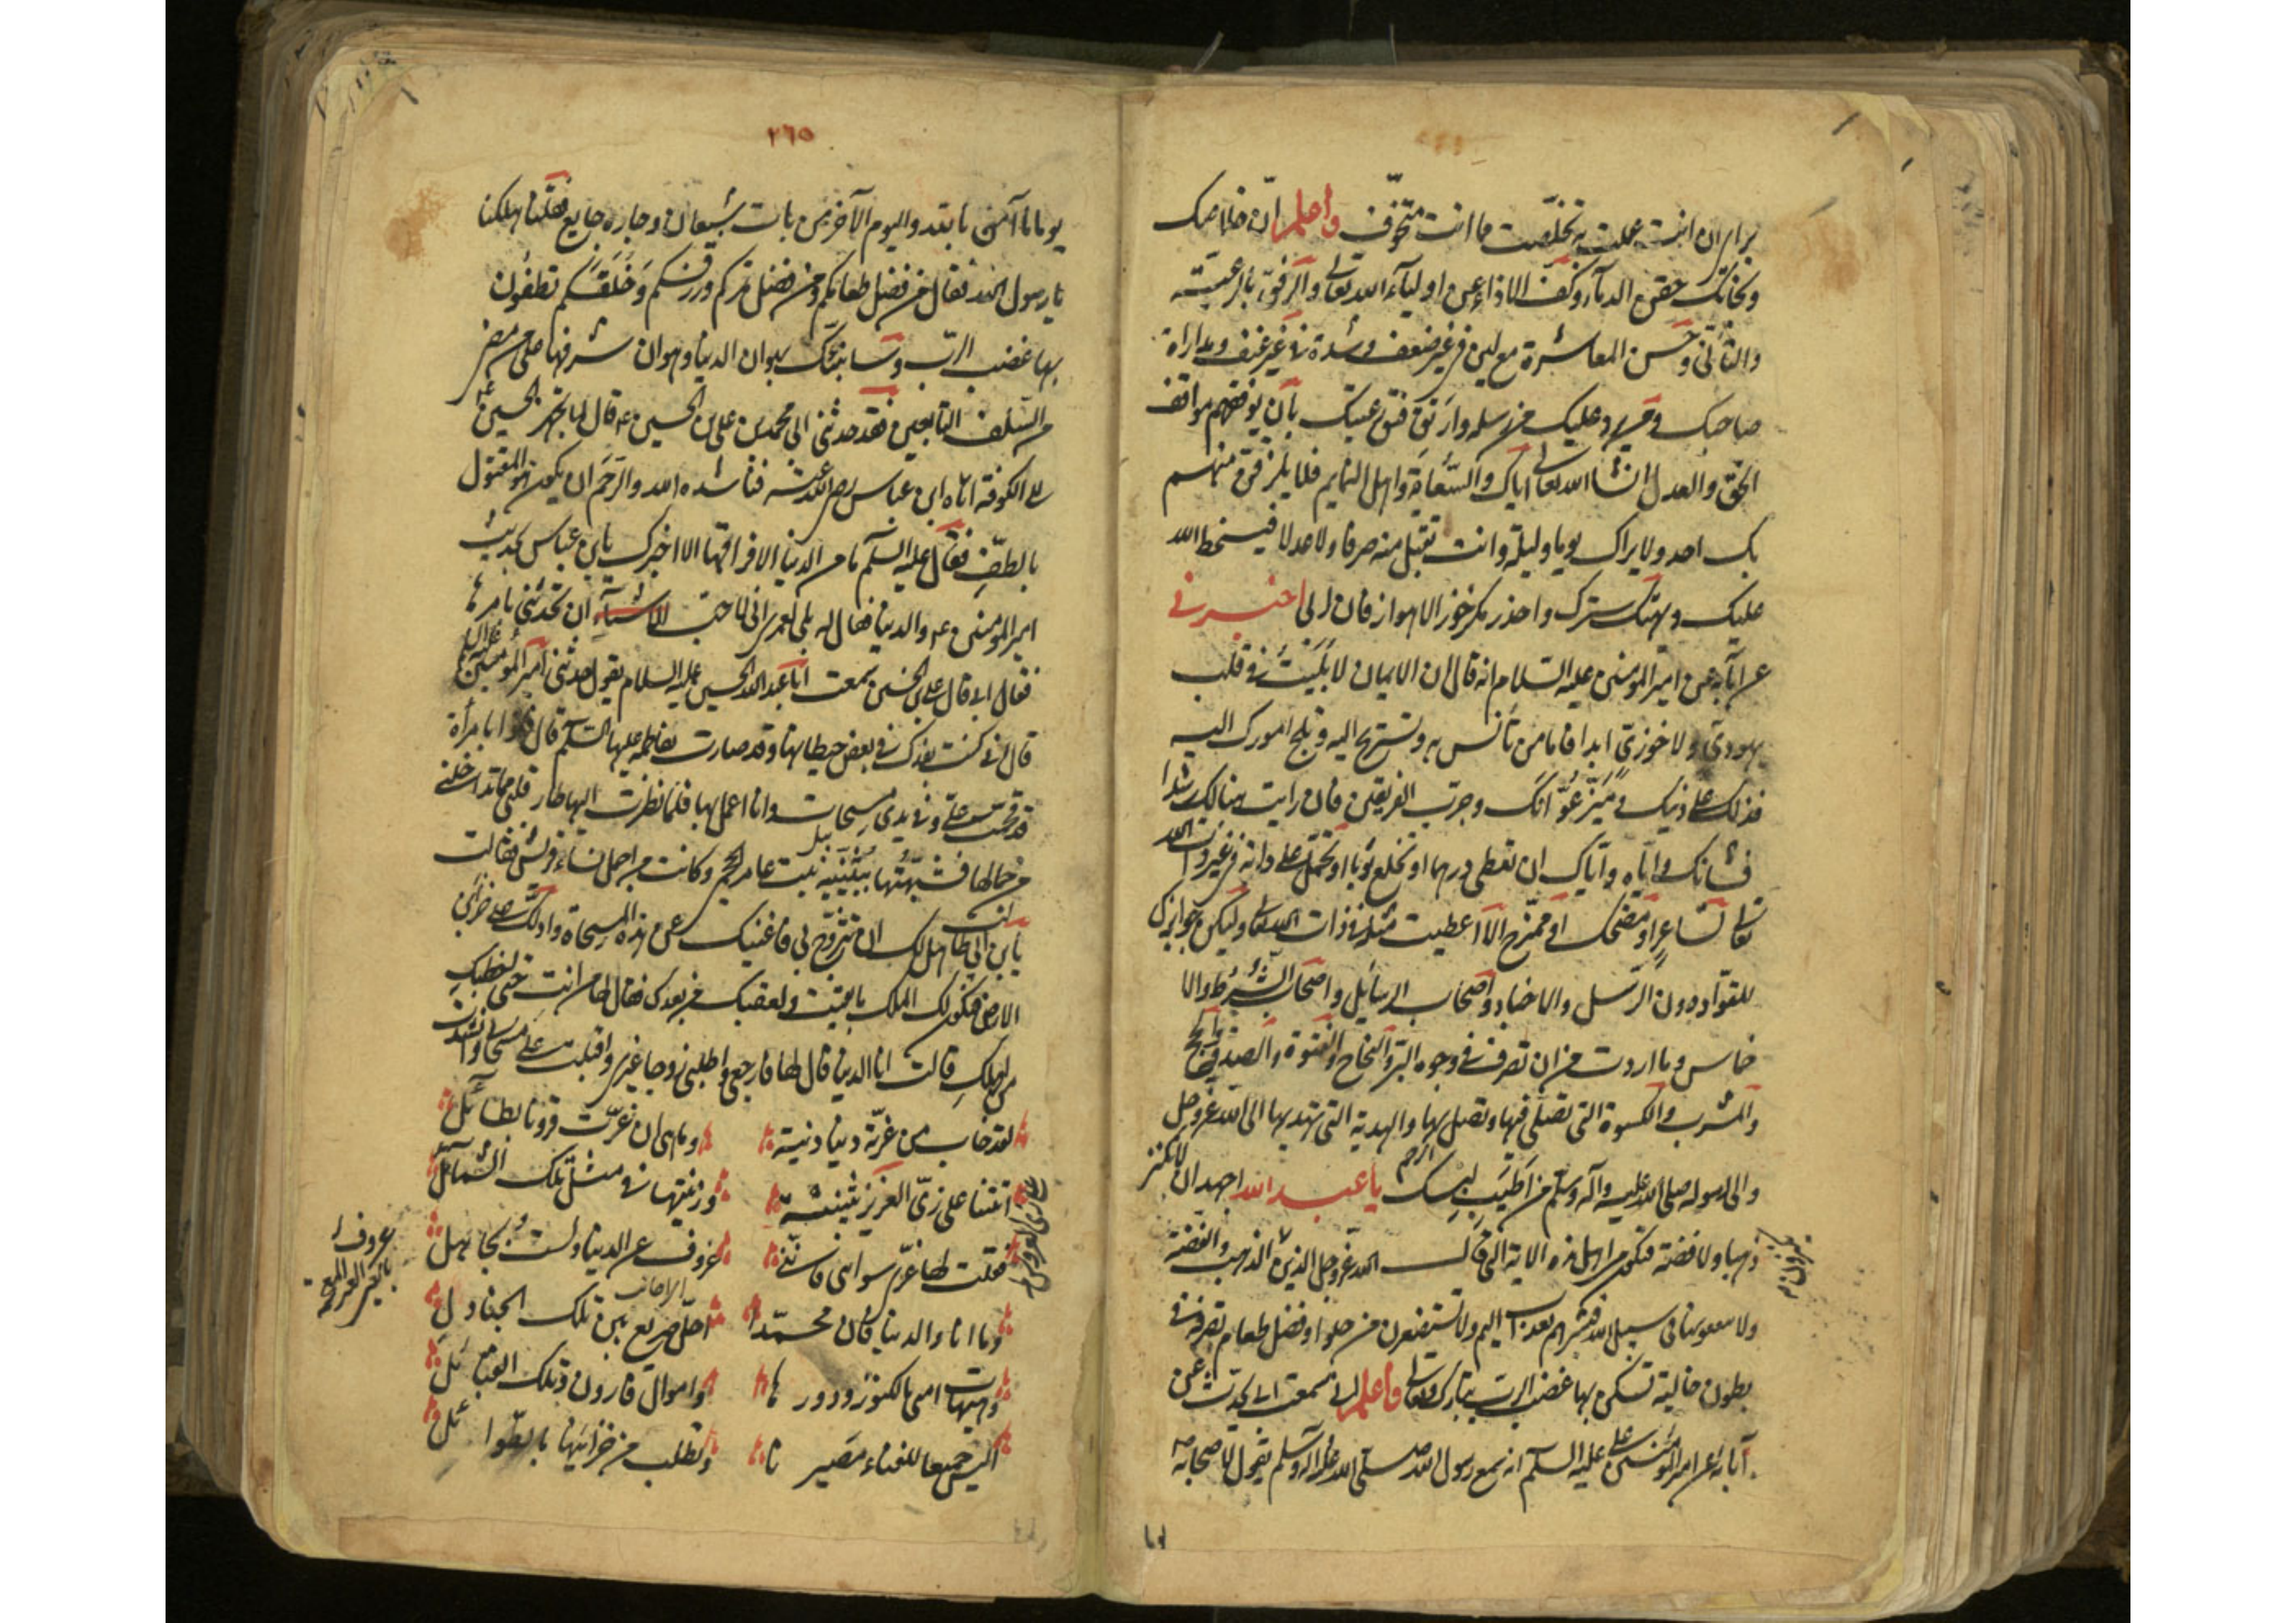 برأي ان انت عملت به تخلصت ما انت متخوفه واعلم ان خلاصك
ونجاتك حقن الدماء وكف الاذاء عن اولياء الله تعالى والرفق بالرعية
والتأني وحسن المعاشرة مع لين في غير ضعف وشدة في غير عنف ومداراة
صاحبك ومن يرد عليك من رسله وارتق فتق رعيتك بان توقفهم مواقف
الحق والعدل انشا الله تعالى اياك والسعاة واهل النمايم فلا يلزقن منهم
بك احد ولا يراك يوما وليلة وانت تقبل منه صرفا ولا عدلا فيسخط الله
عليك ويهتك سترك واحذر مكر خوز الاهواز فان ابي اخبرني
عن آبائه عن امير المؤمنين عليه السلام انه قال ان الايمان لا يثبت في قلب
يهودي ولا خوزي ابدا فاما من تأنس به وتستريح اليه وتلج امورك اليه
فذلك على دينك وميز عوانك وجرب الفريقين فان رايت هنالك رشدا
فشانك واياه واياك ان تعطي درهما او تخلع ثوبا او تحمل على دابة في غير ذات الله
تعالى لشاعر او مضحك او ممتزح الا اعطيت مثله في ذات الله تعالى وليكن جوايزك
للقواد دون الرسل والاخباد واصحاب الرسائل واصحاب الشرط والا
خماس وما اردت من ان تصرف في وجوه البر والنجاح والفتوة والصدقة والحج
والمشرب والكسوة التي تصلي فيها وتصل بها والهدية التي تهديها الى الله عز وجل
والى رسوله صلى الله عليه وآله وسلم من اطيب كسبك يا عبد الله اجهد ان لا تكنز
ذهبا ولا فضة فتكون من اهل هذه الاية التي قال الله عز وجل الذين الذهب والفضة
ولا ينفقونها في سبيل الله فبشرهم بعذاب اليم ولا تستصغرن من حلو او فضل طعام تصرفه في
بطون خالية تسكن بها غضب الرب تبارك وتعالى واعلم اني سمعت ابي يحدث عن
آبائه عن امير المؤمنين علي عليه السلام انه سمع رسول الله صلى الله عليه واله وسلم يقول لاصحابه
٢٦٥
يوما ما آمن بالله واليوم الآخر من بات شبعان وجاره جايع فقلنا هلكنا
يا رسول الله فقال من فضل طعامكم ومن فضل تمركم ورزقكم وخلقكم تطفون
بها غضب الرب وسانبئك بهوان الدنيا وهوان شرفها على من مضى
من السلف التابعين فقد حدثني ابي محمد بن علي بن الحسين ع قال لما تجهز الحسين ع
الى الكوفة اتاه ابن عباس رضي الله عنه فناشده الله والرحم ان يكون هو المقتول
بالطف فقال عليه السلام ما من الدنيا الا فراقها الا اخبرك يا بن عباس بحديث
امير المؤمنين ع والدنيا فقال له بلى لعمري اني لاحب ان تحدثني بامرها
فقال ابي قال علي بن الحسين سمعت ابا عبد الله الحسين عليه السلام يقول حدثني امير المؤمنين عليه السلام
قال اني كنت بفدك في بعض حيطانها وقد صارت لفاطمة عليها السلم قال فاذا بامرأة
قد قحمت علي وفي يدي مسحات وانا اعمل بها فلما نظرت اليها طار قلبي مما تداخلني
من جمالها فشبهتها ببثينة بنت عامر الجمحي وكانت من اجمل نساء قريش فقالت
يا بن ابي طالب هل لك ان تتزوج بي فاغنيك عن هذه المسحاة وادلك على خزائن
الارض فيكون لك الملك ما بقيت ولعقبك من بعدك فقال لها من انت حتى اخطبك
من اهلك قالت انا الدنيا قال لها فارجعي واطلبي زوجا غيري واقبلت على مسحاتي وانشدت
لقد خاب من غرته دنيا دنية وما هي ان غرت قرونا بطائل
اتتنا على زي العزيز بثينة وزينتها في مثل تلك الشمائل
فقلت لها غري سواي فانني عزوف عن الدنيا ولست بجاهل
وما انا والدنيا فان محمدا احل صريعا بين تلك الجنادل
وهيهات امني بالكنوز ودورها واموال قارون وملك القبائل
اليس جميعا للفناء مصيرنا ويطلب من خزانها بالطوائل